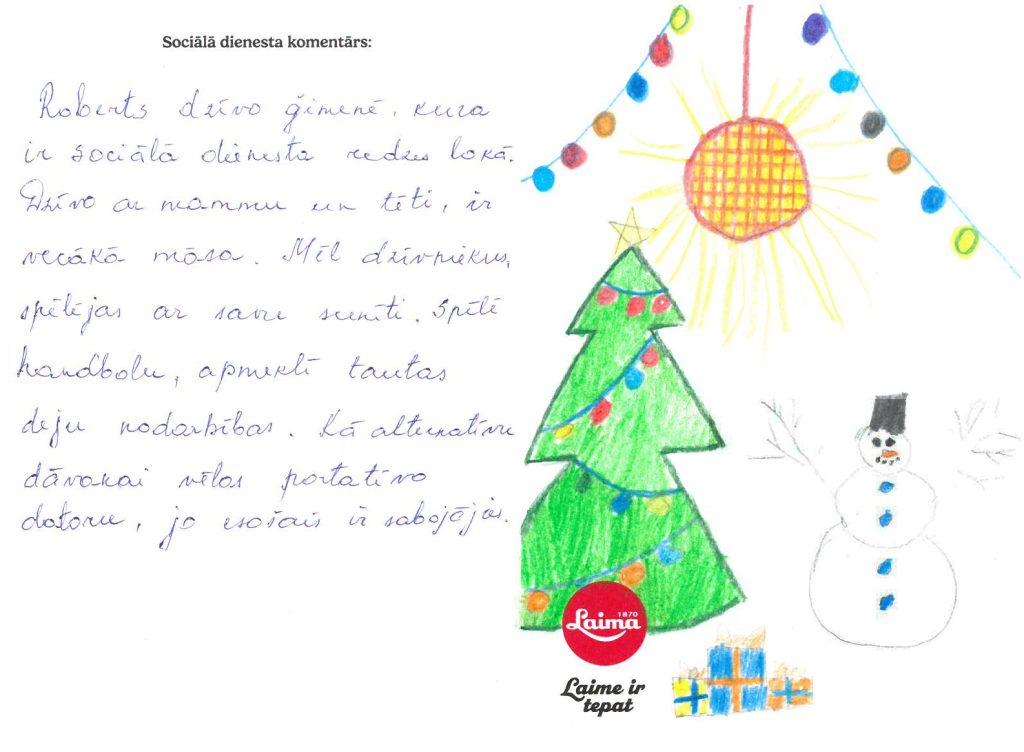 Sociālā dienesta komentārs:
Roberts dzīvo ģimenē, kura
ir sociālā dienesta redzes lokā.
Dzīvo ar mammu un tēti, ir
vecākā māsa. Mīl dzīvniekus,
spēlējas ar savu sunīti. Spēlē
handbolu, apmeklē tautas
deju nodarbības. Kā alternatīvu
dāvanai vēlas portatīvo
datoru, jo esošais ir sabojājies.
Laima
1870
Laime ir
tepat